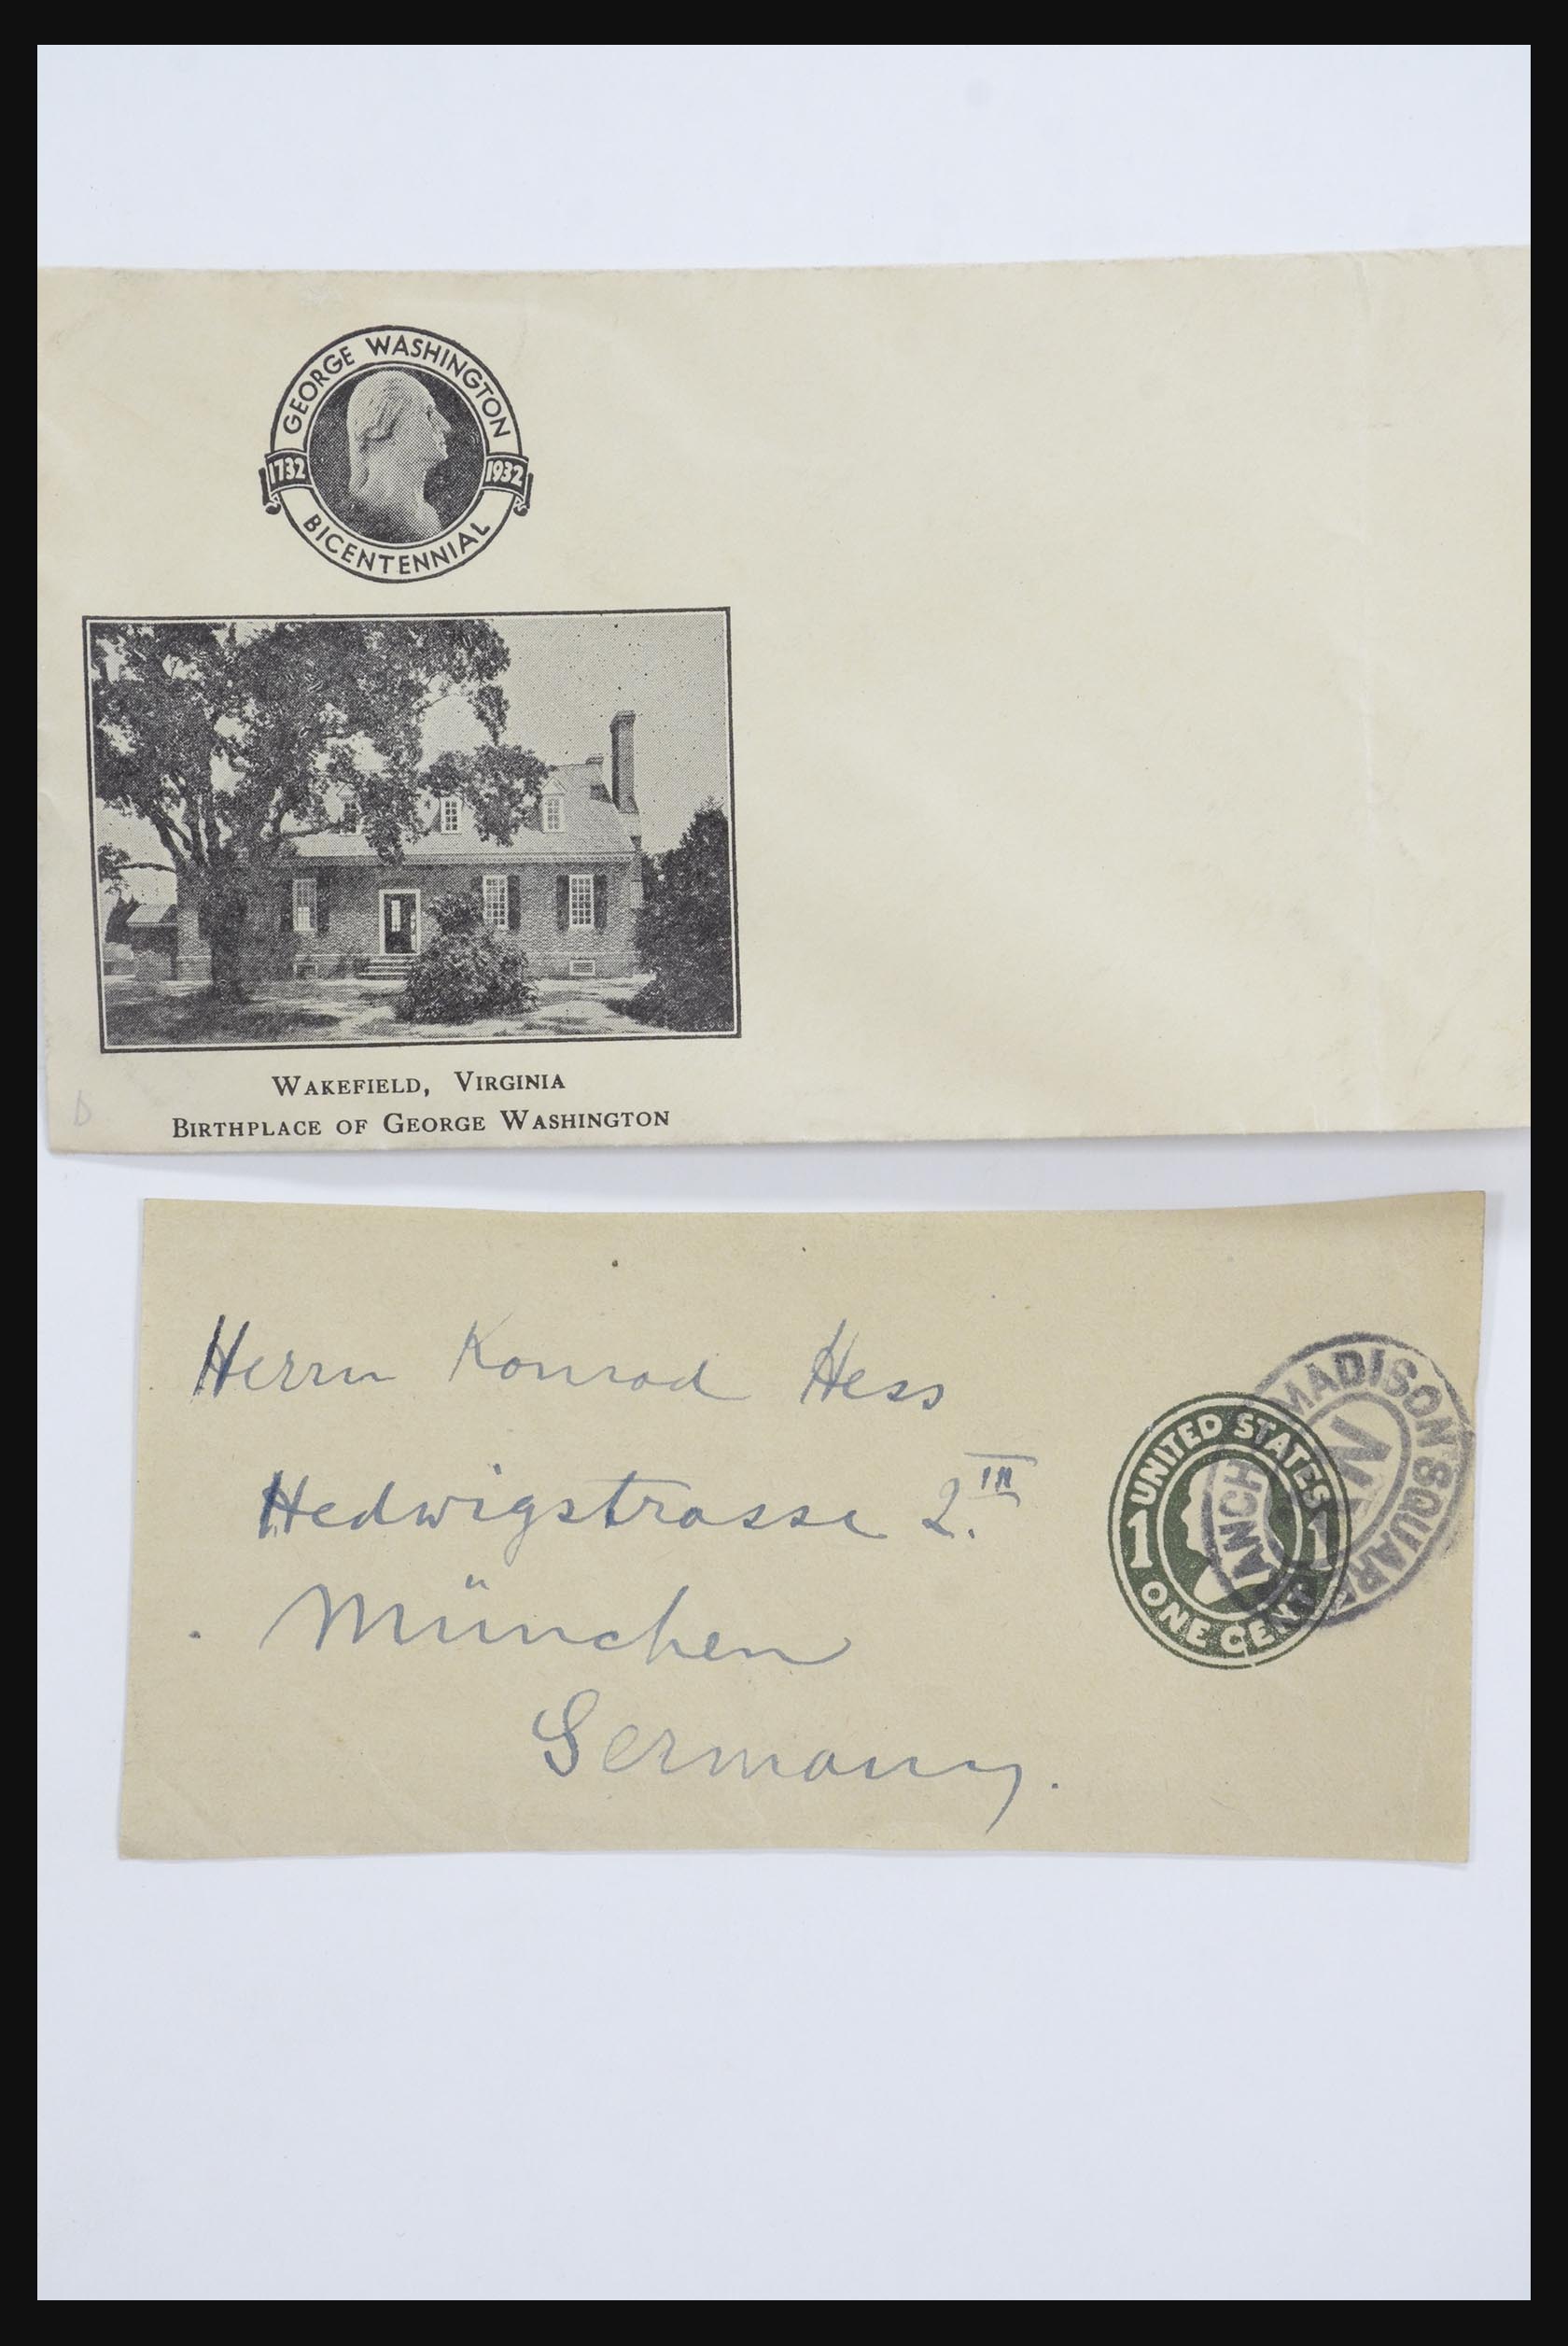 GEORGE WASHINGTON
1732 1932
BICENTENNIAL
WAKEFIELD, VIRGINIA
BIRTHPLACE OF GEORGE WASHINGTON
D
Herrn Konrad Hess
Hedwigstrasse 2. III
München
Germany.
UNITED STATES
1 1
ONE CENT
MADISON SQUARE
ANCH
N